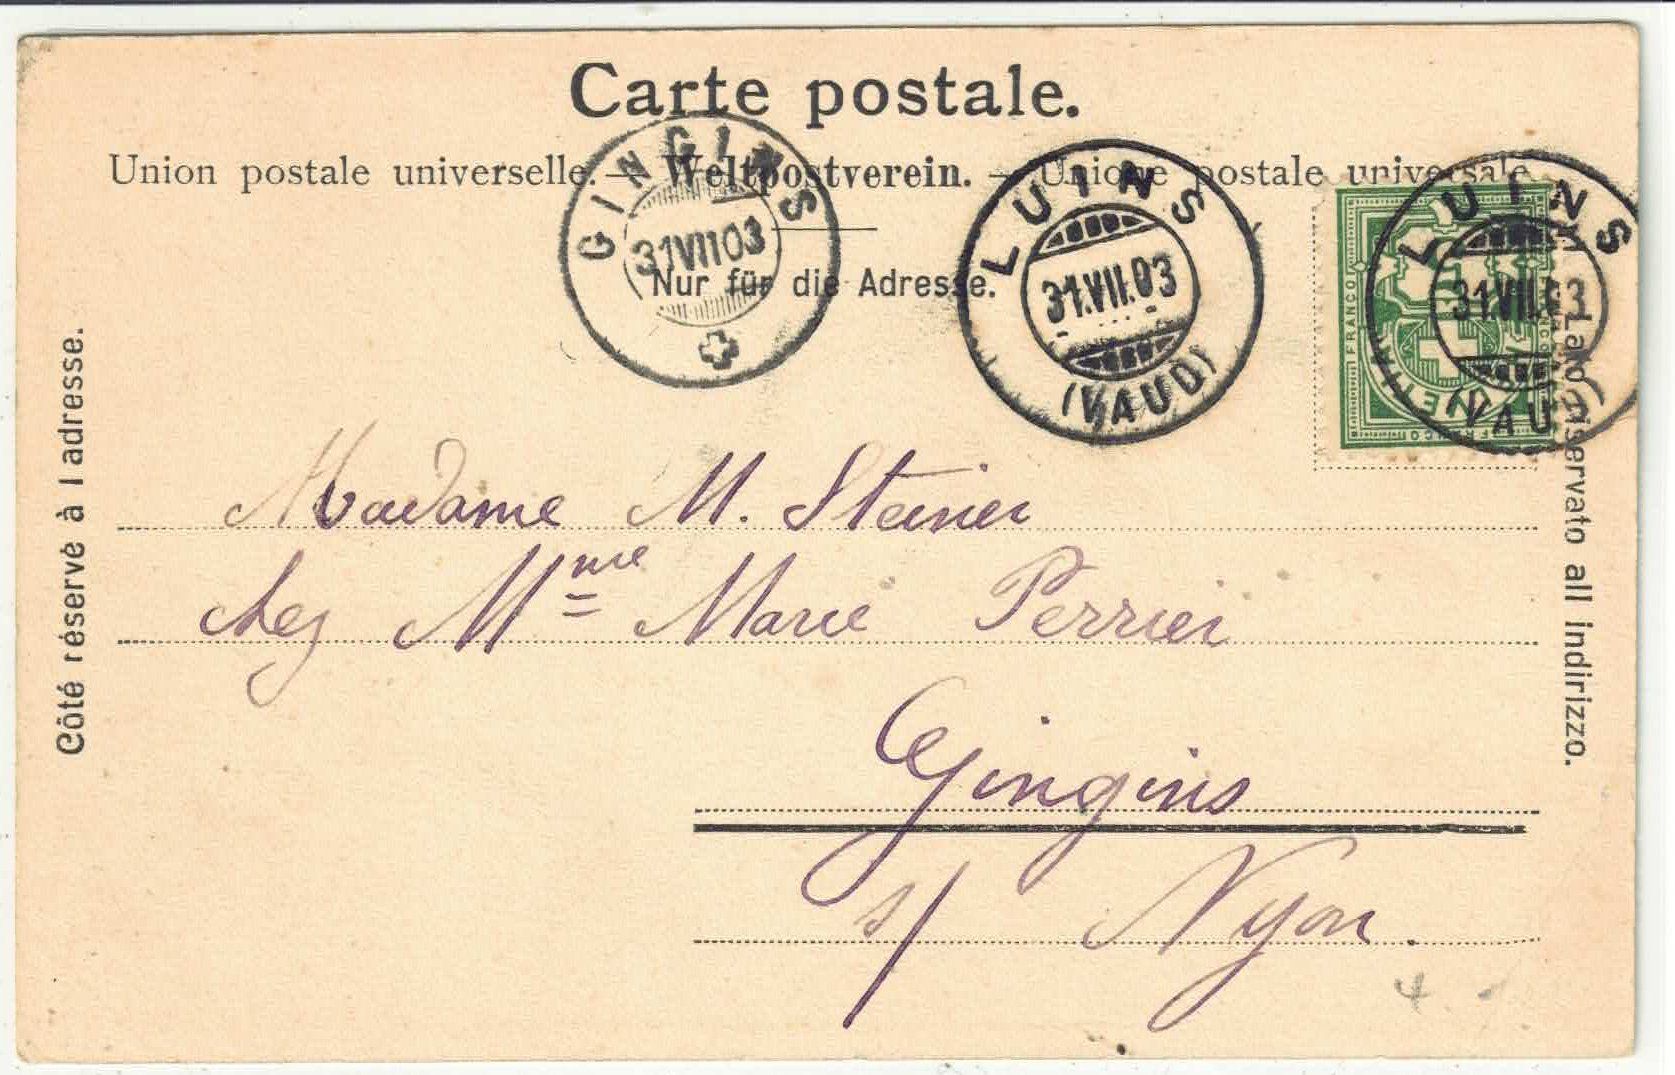 Carte postale.
Union postale universelle. — Weltpostverein. — Unione postale universale
Nur für die Adresse.
GINGINS
31VII03
LUINS
31.VII.03
(VAUD)
LUINS
31.VII.03
(VAUD)
FRANCO
FRANCO
Côté réservé à l adresse.
Lato riservato all indirizzo.
Madame M. Steinier
chez Mme Marie Perrier
Gingins
s/ Nyon.
4